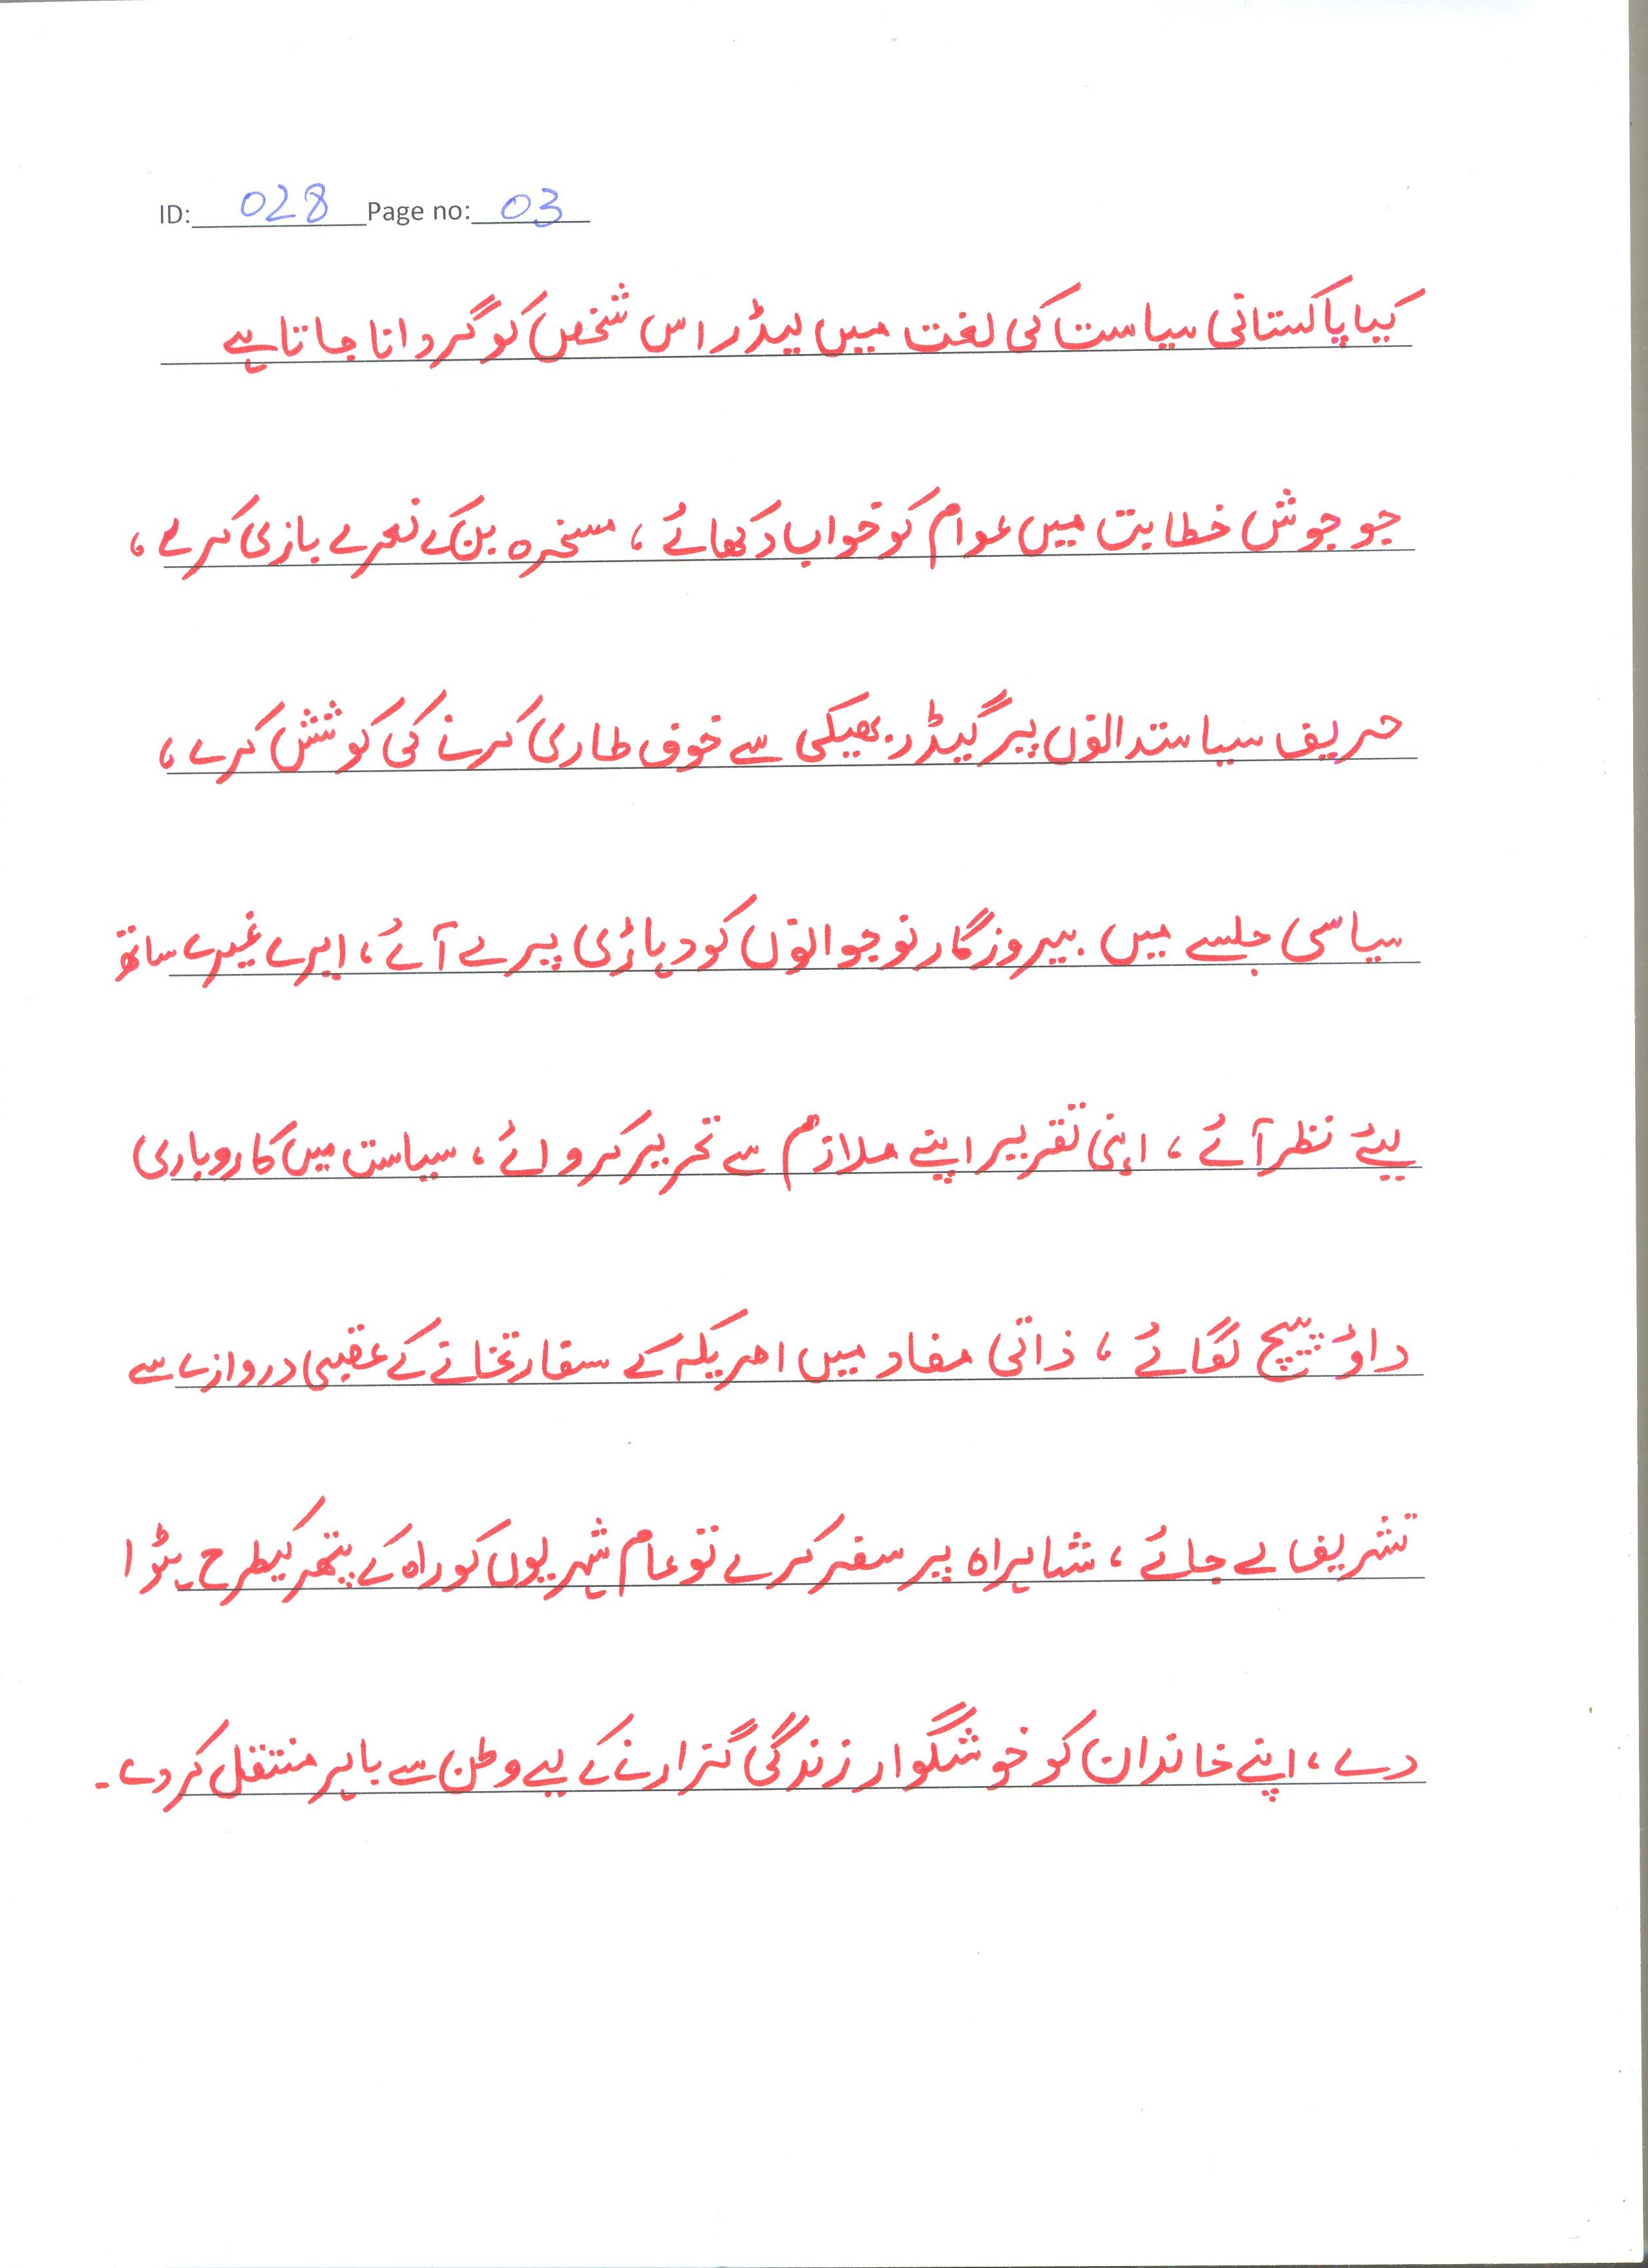 ID: 028 Page no: 03
کیا پاکستانی سیاست کی لغت میں لیڈر اس شخص کو گردانا جاتا ہے
جو جوش خطابت میں عوام کو خواب دکھائے ، مسخرہ بن کے نعرے بازی کرے ،
حریف سیاستدانوں پر گیڈر بھبکی سے خوف طاری کرنے کی کوشش کرے ،
سیاسی جلسے میں بیروزگار نوجوانوں کو دہاڑی پر لے آئے ، ایرے غیرے ساتھ
لیئے نظر آئے ، اپنی تقریر اپنے ملازم سے تحریر کروائے ، سیاست میں کاروباری
داؤ پیچ لگائے ، ذاتی مفاد میں امریکہ کے سفارتخانے کے عقبی دروازے سے
تشریف لے جائے ، شاہراہ پر سفر کرے تو عام شہریوں کو راہ کے پتھر کیطرح ہٹوا
دے ، اپنے خاندان کو خوشگوار زندگی گزارنے کے لیے وطن سے باہر منتقل کر دے ۔